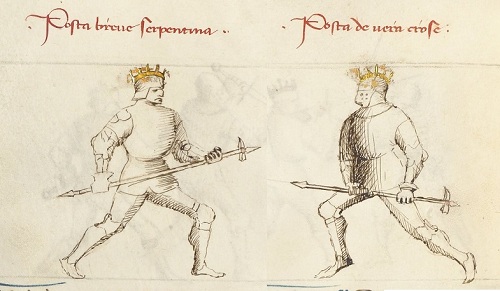 Posta breve serpentina ··
Posta de vera crose :